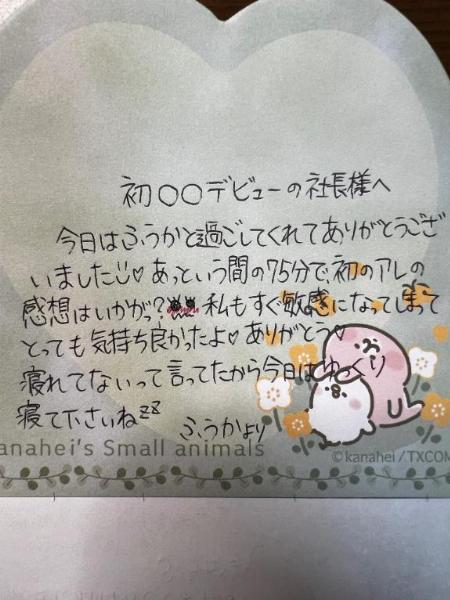 初〇〇デビューの社長様へ
今日はふうかと過ごしてくれてありがとうござ
いました♡あっという間の75分で初のアレの
感想はいかがっ?私もすぐ敏感になってしまって
とっても気持ち良かったよ♡ありがとう♡
寝れてないって言ってたから今日はゆっくり
寝て下さいねzz
ふうかより
anahei's Small animals
©kanahei/TXCOM